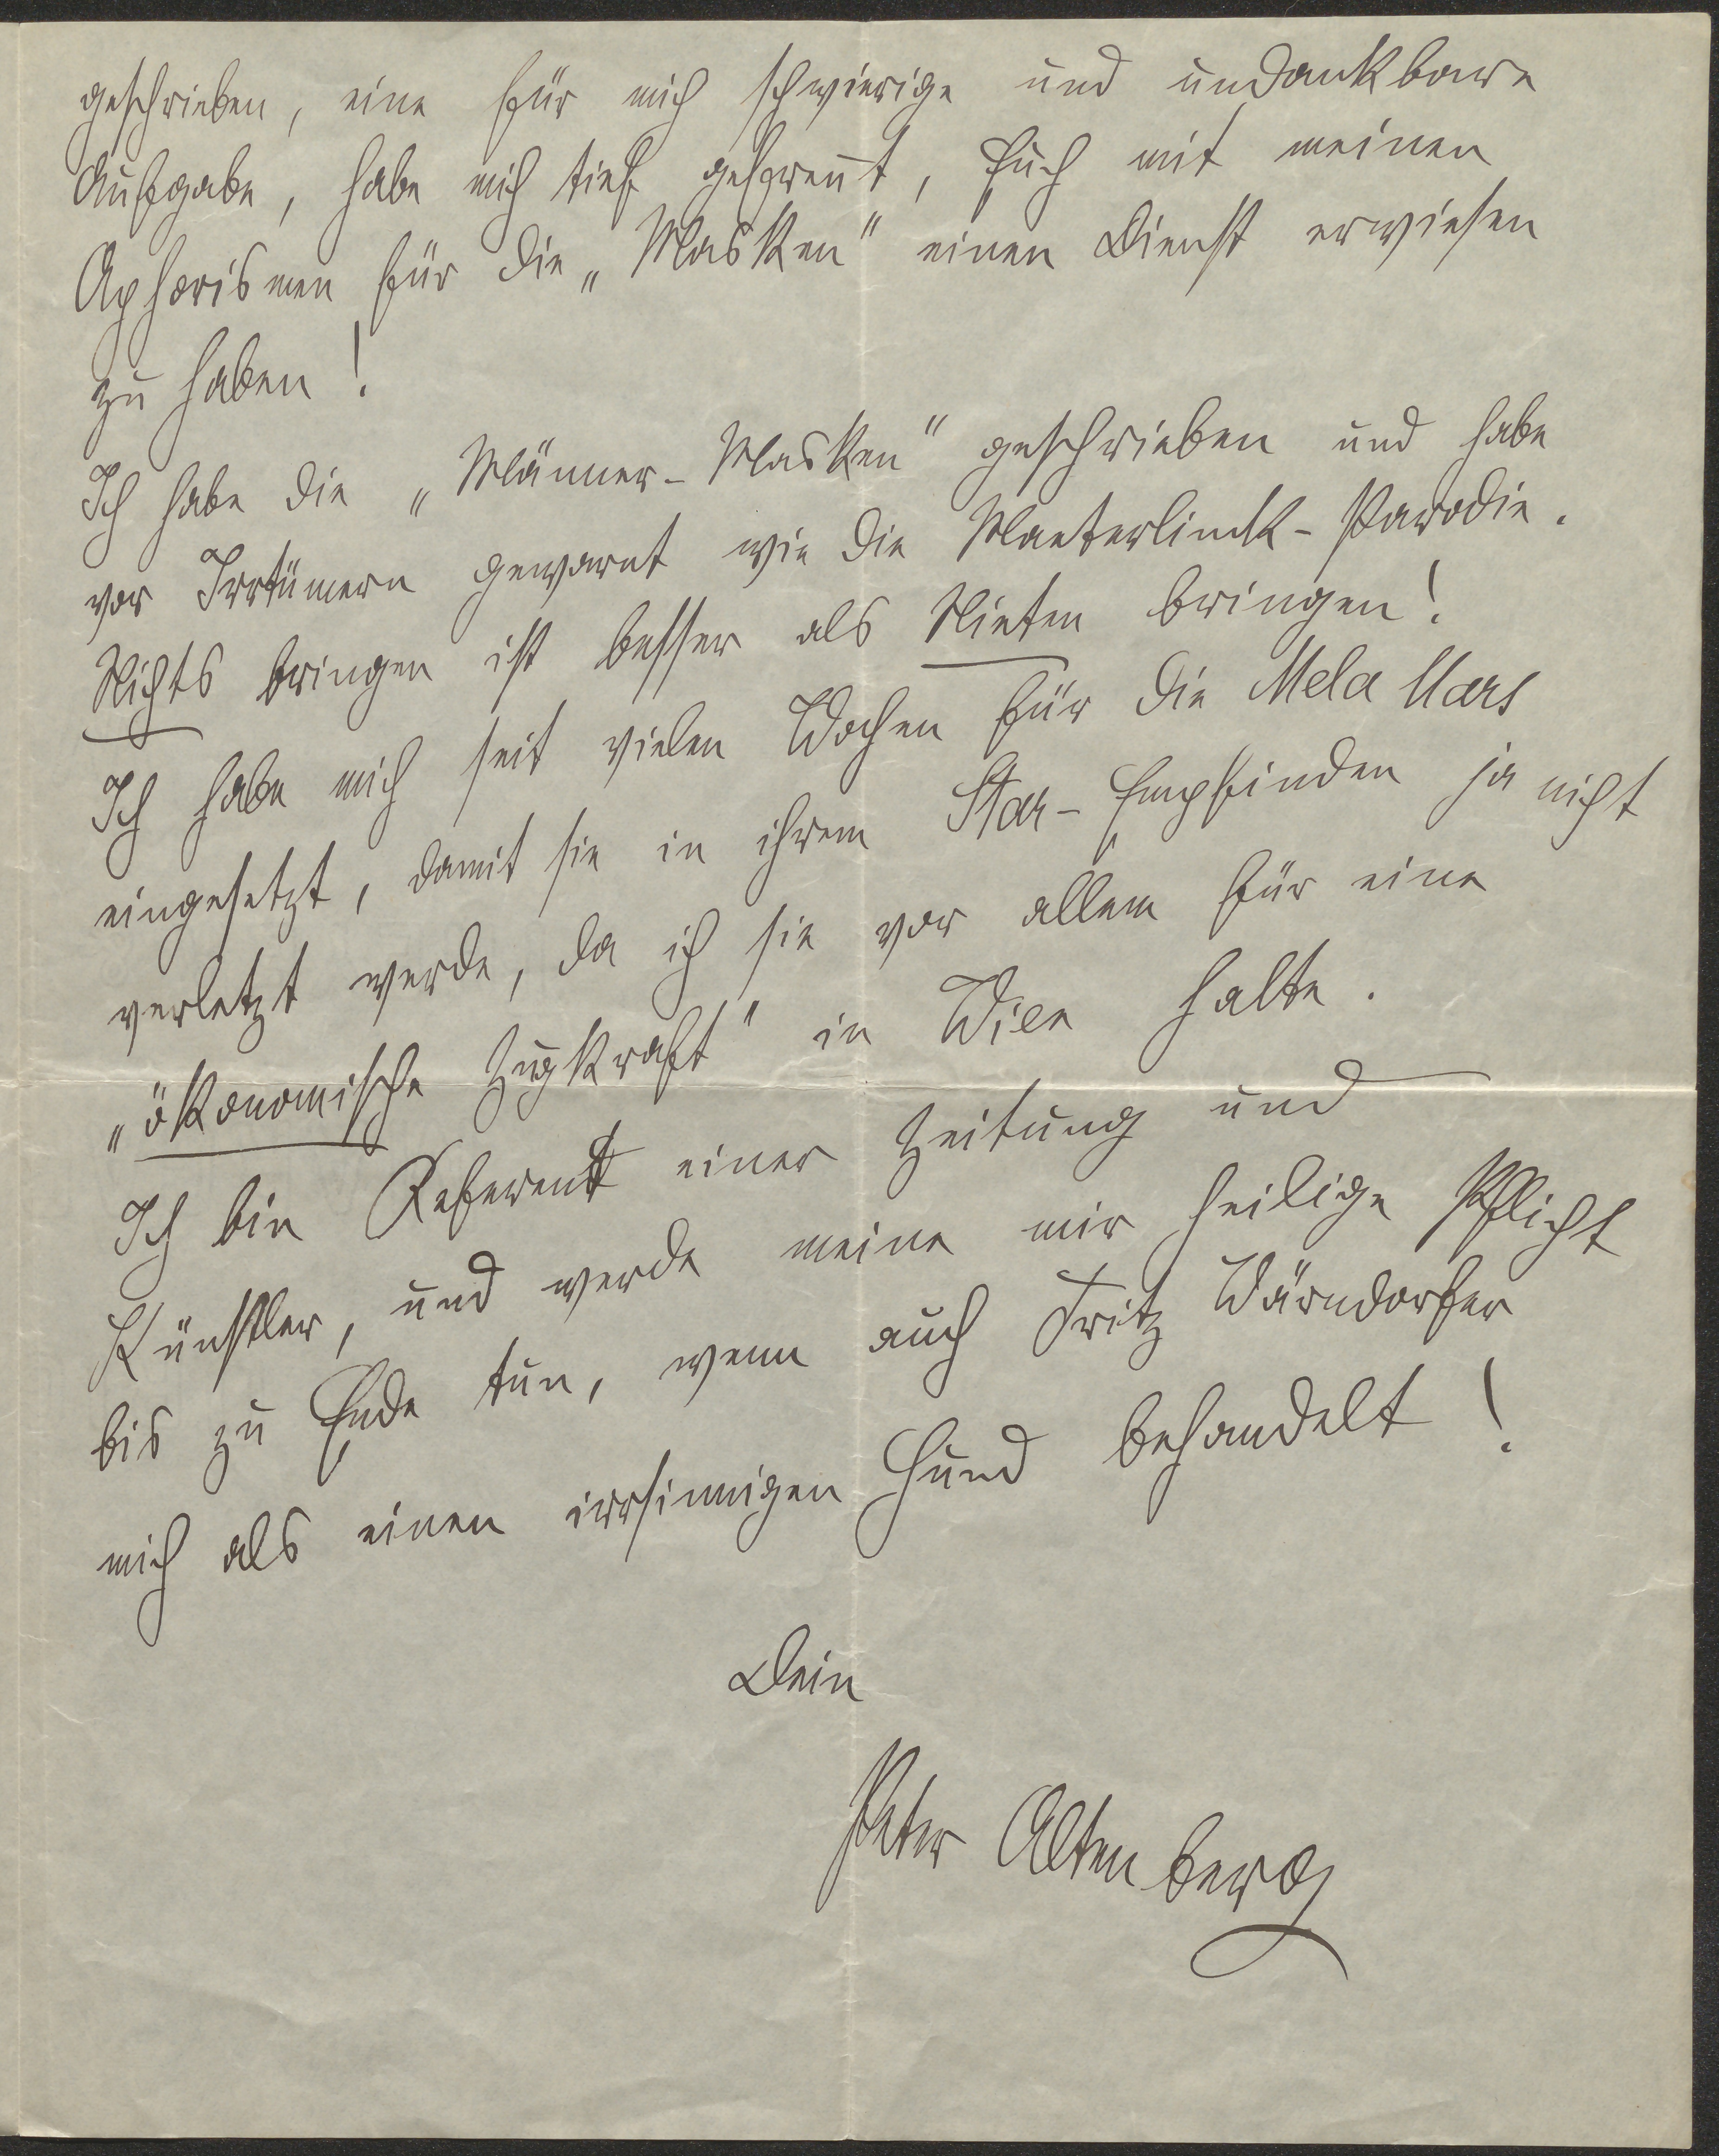 geschrieben, eine für mich schwierige und undankbare
Aufgabe, habe mich tief gefreut, Euch mit meinen
Aphorismen für die „Masken" einen Dienst erwiesen
zu haben!
Ich habe die „Männer-Masken" geschrieben und habe
vor Irrtümern gewarnt wie die Maeterlinck-Parodie.
Nichts bringen ist besser als Nieten bringen!
Ich habe mich seit vielen Wochen für die Mela Mars
eingesetzt, damit sie in ihrem Star-Empfinden ja nicht
verletzt werde, da ich sie vor allem für eine
„ökonomische Zugkraft" in Wien halte.
Ich bin Referent einer Zeitung und
Künstler, und werde meine mir heilige Pflicht
bis zu Ende tun, wenn auch Fritz Wärndorfer
mich als einen irrsinnigen Hund behandelt!
Dein
Peter Altenberg